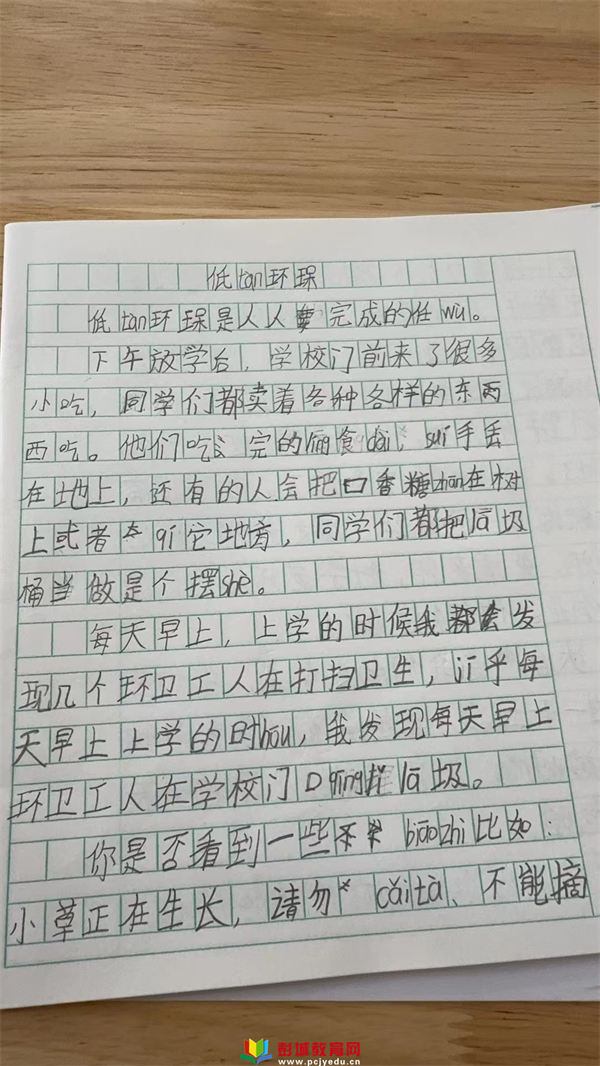 低tan环保
低tan环境是人人要完成的任wù。
下午放学后，学校门前来了很多
小吃，同学们都卖着各种各样的东西
西吃。他们吃完的俩食dài，suí手丢
在地上，还有的人会把口香糖zhan在树
上或者qí它地方，同学们都把lā圾
桶当做是个摆shè。
每天早上，上学的时候我都会发
现几个环卫工人在打扫卫生，jī乎每
天早上上学的时hou，我发现每天早上
环卫工人在学校门口qīng lā圾。
你是否看到一些biāozhì比如：
小草正在生长，请勿cǎità、不能摘
彭城教育网
www.pcjyedu.cn